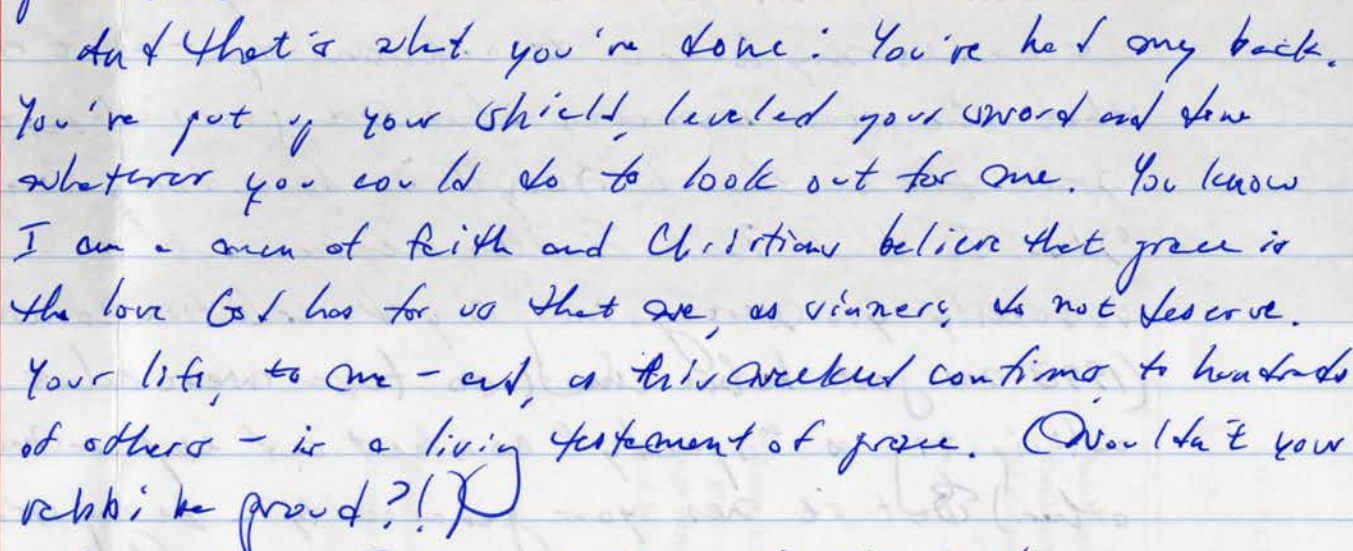 And that's what you've done: You've had my back.
You've put up your shield, leveled your sword and done
whatever you could do to look out for me. You know
I am a man of faith and Christians believe that grace is
the love God has for us that we, as sinners, do not deserve.
Your life, to me – and, as this weekend confirms, to hundreds
of others – is a living testament of grace. (Wouldn't your
rabbi be proud?!)